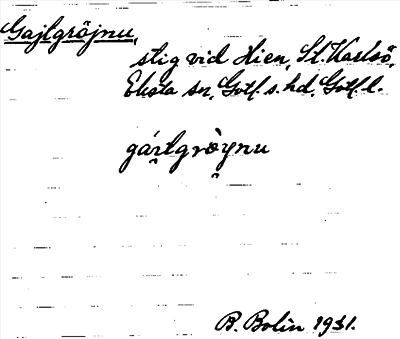 Gajlgröjnu,
stig vid Hien, St. Karlsö,
Eksta sn, Gotl. s. hd, Gotl. l.
gárlgròynu
B. Bolin 1931.